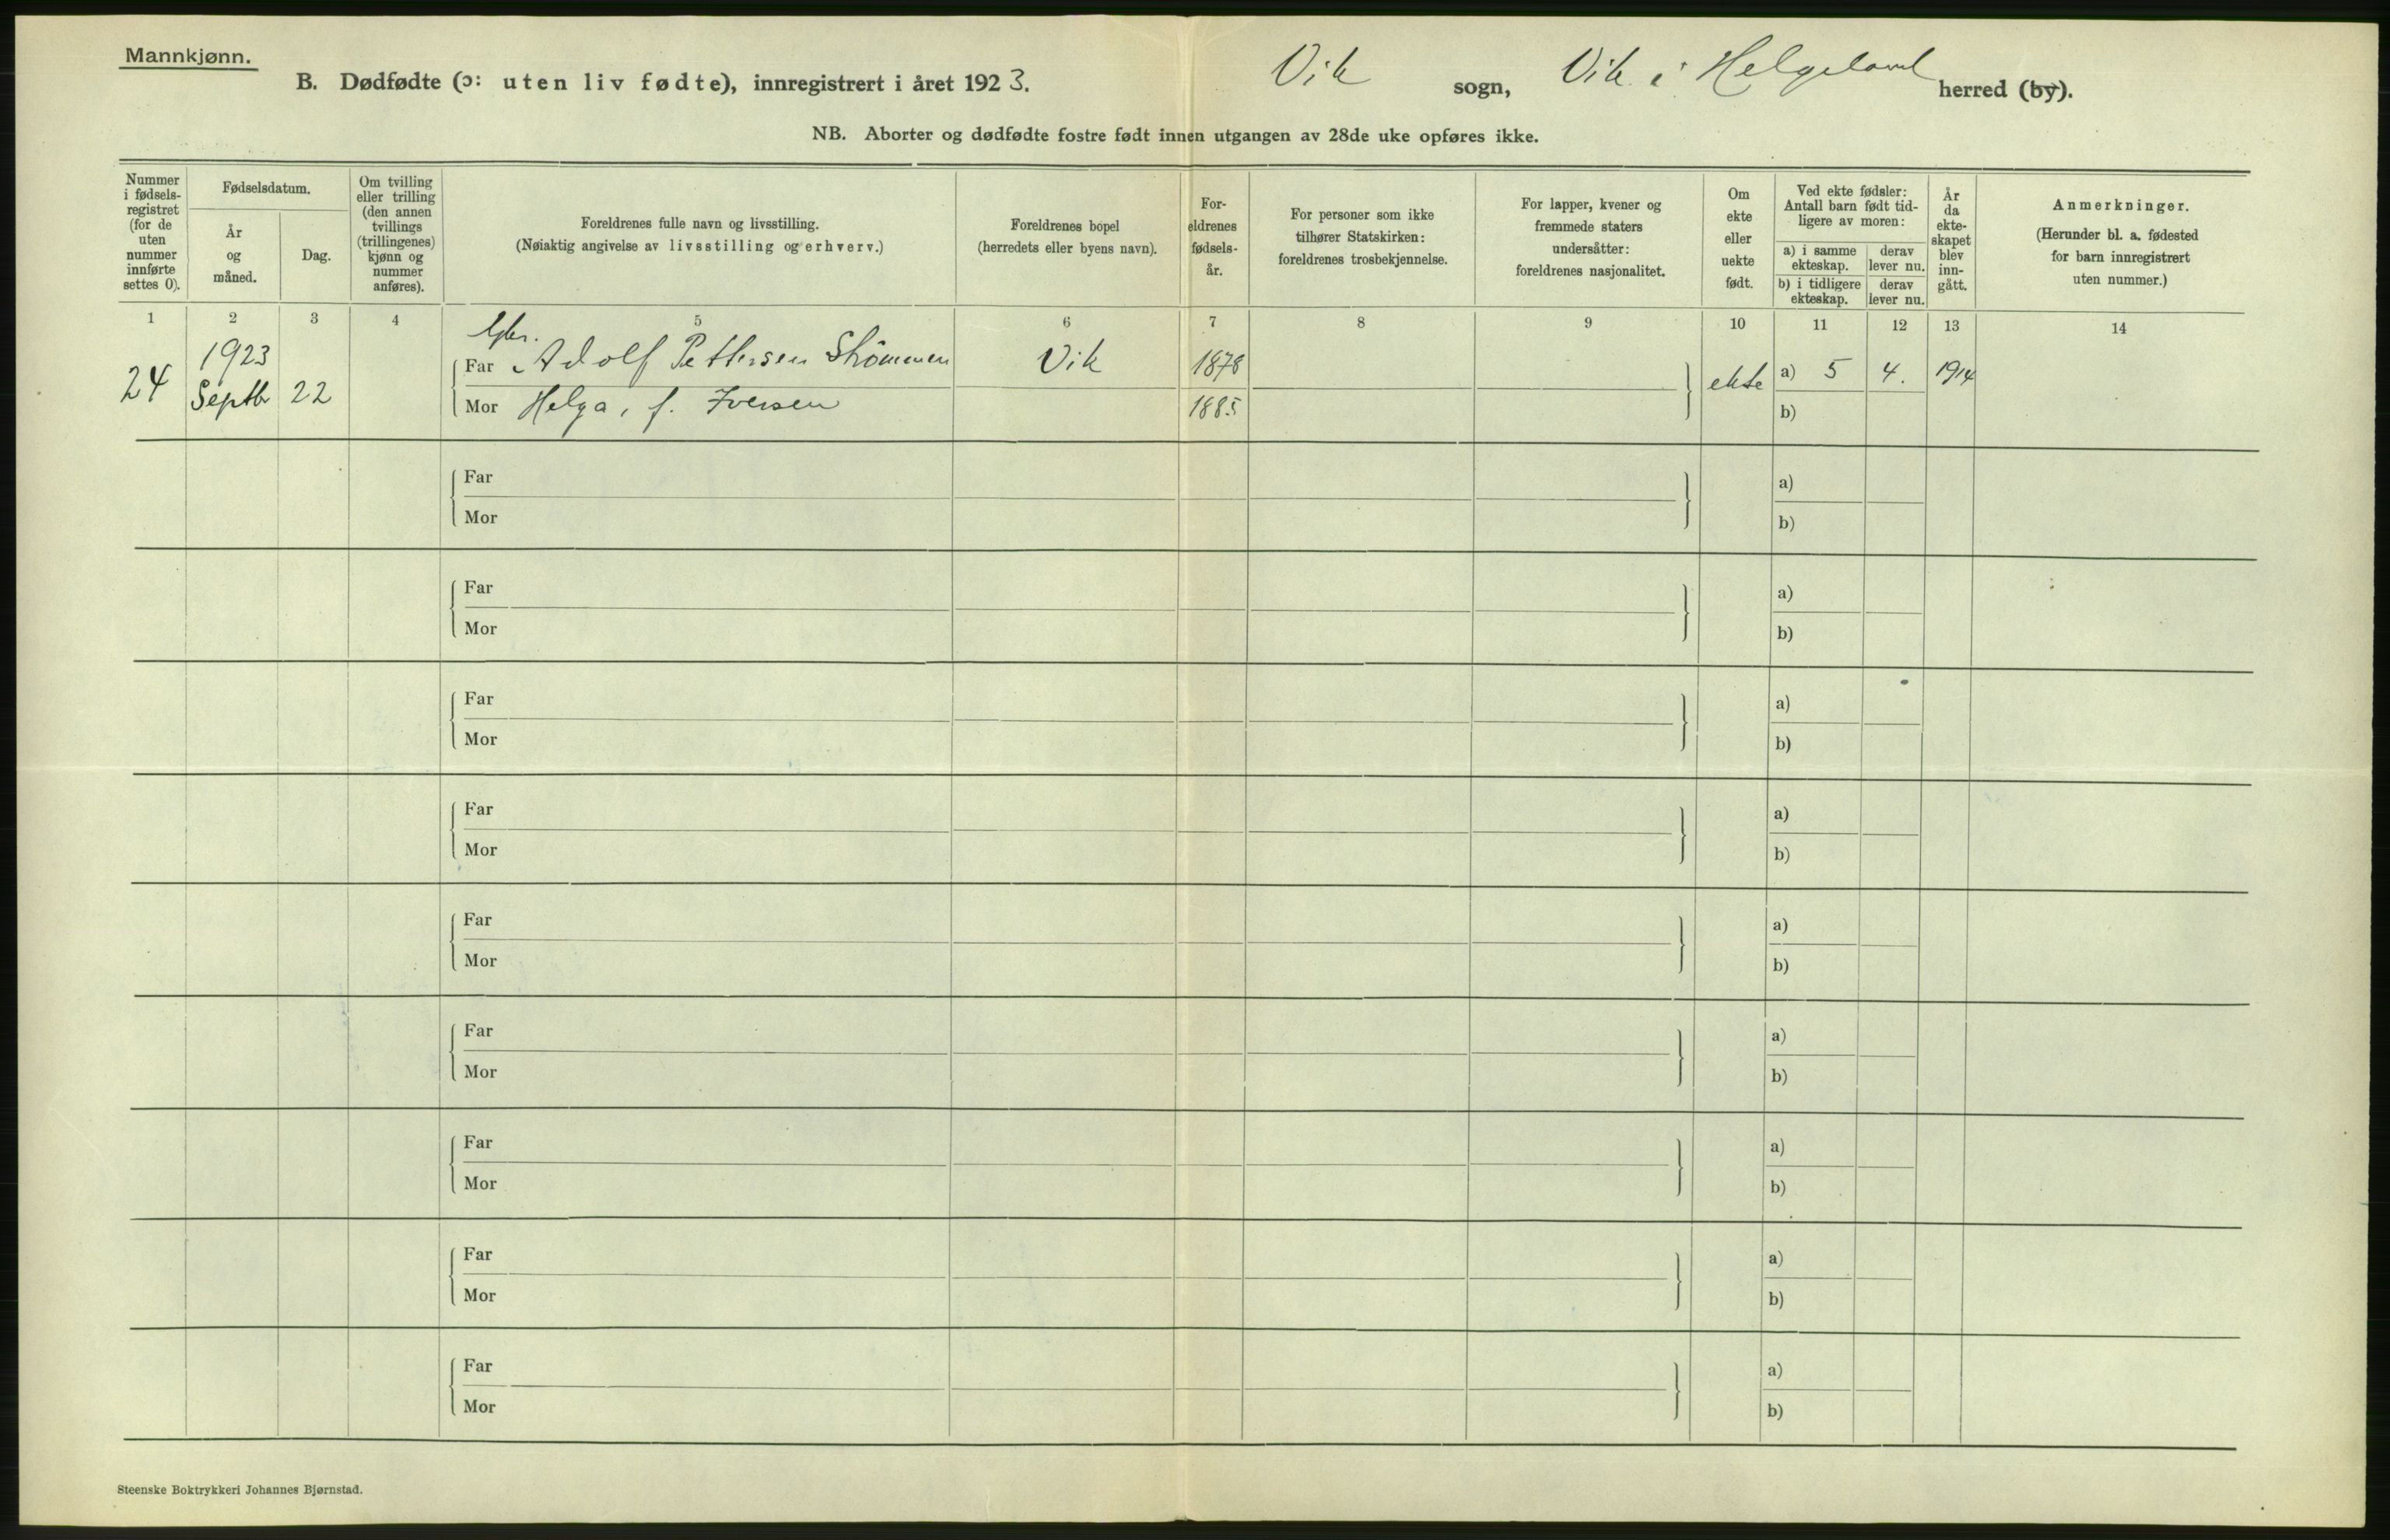 Mannkjønn.
B. Dødfødte (ɔ: uten liv fødte), innregistrert i året 1923.
Vik sogn, Vik i Helgeland herred (by).
NB. Aborter og dødfødte fostre født innen utgangen av 28de uke opføres ikke.
Nummer
i fødsels-
registret
(for de
uten
nummer
innførte
settes 0).
Fødselsdatum.
År
og
måned.
Dag.
Om tvilling
eller trilling
(den annen
tvillings
(trillingenes)
kjønn og
nummer
anføres).
Foreldrenes fulle navn og livsstilling.
(Nøiaktig angivelse av livsstilling og erhverv.)
Foreldrenes bopel
(herredets eller byens navn).
For-
eldrenes
fødsels-
år.
For personer som ikke
tilhører Statskirken:
foreldrenes trosbekjennelse.
For lapper, kvener og
fremmede staters
undersåtter:
foreldrenes nasjonalitet.
Om
ekte
eller
uekte
født.
Ved ekte fødsler:
Antall barn født tid-
ligere av moren:
a) i samme
ekteskap.
derav
lever nu.
b) i tidligere
ekteskap.
derav
lever nu.
År
da
ekte-
skapet
blev
inn-
gått.
Anmerkninger.
(Herunder bl. a. fødested
for barn innregistrert
uten nummer.)
1 2 3 4 5 6 7 8 9 10 11 12 13 14
24
1923
Septbr 22
Far Adolf Pettersen Strømmen Vik 1878
Mor Helga, f. Iversen 1885
ekte a) 5 4. 1914
b)
Far a)
Mor b)
Far a)
Mor b)
Far a)
Mor b)
Far a)
Mor b)
Far a)
Mor b)
Far a)
Mor b)
Far a)
Mor b)
Far a)
Mor b)
Far a)
Mor b)
Steenske Boktrykkeri Johannes Bjørnstad.